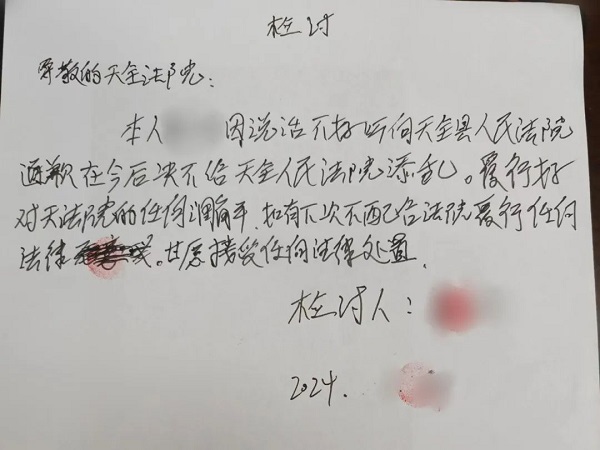 检讨
尊敬的天全法院：
本人 因说话不好听向天全县人民法院
道歉在今后决不给天全人民法院添乱。履行好
对天法院的任何调解。如有下次不配合法院履行任何
法律 。甘愿接受任何法律处置.
检讨人：
2024.